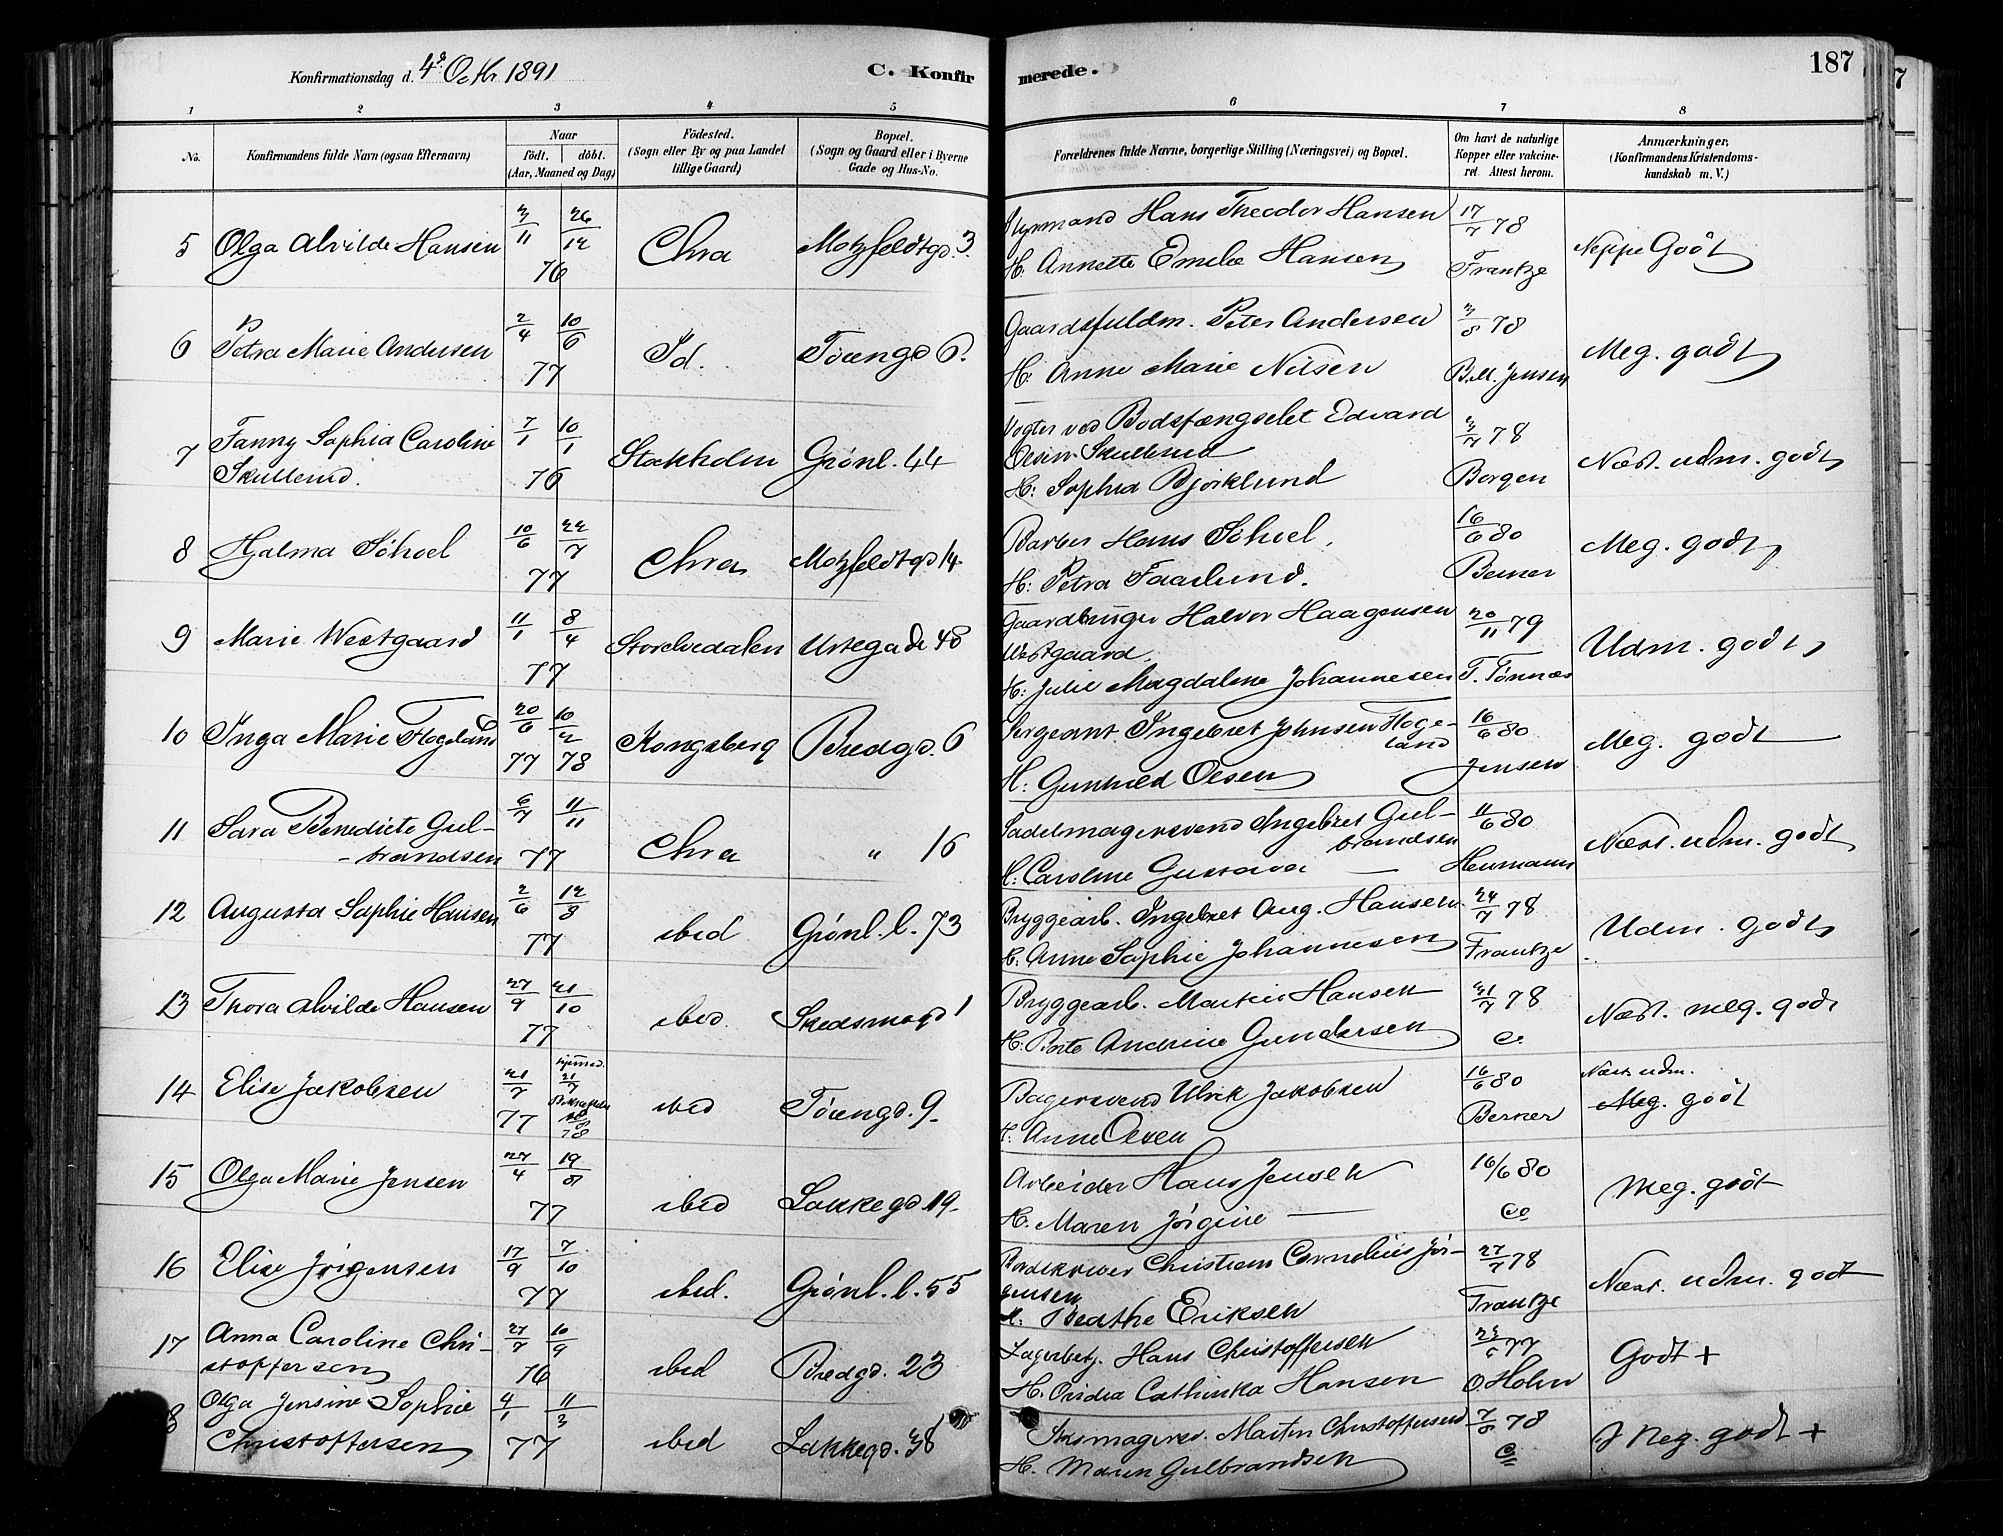 187
Konfirmationsdag d. 4de Octbr. 1891 C. Konfirmerede.
1 2 3 4 5 6 7 8
No. Konfirmandens fulde Navn (ogsaa Efternavn) Naar Födt. döbt. (Aar, Maaned og Dag) Födested. (Sogn eller By og paa Landet tillige Gaard) Bopæl. (Sogn og Gaard eller i Byerne Gade og Hus-No. Forældrenes fulde Navne, borgerlige Stilling (Næringsvei) og Bopæl. Om havt de naturlige Kopper eller vakcineret. Attest herom. Anmærkninger. (Konfirmandens Kristendomskundskab m. V.)
5 Olga Alvilde Hansen 3/11 26/12 76 Chra Motzfeldtgd. 3. Styrmand Hans Theodor Hansen 17/7 78
H. Annette Emelie Hansen Frantze Neppe Godt
6 Petra Marie Andersen 2/4 10/6 77 Id. Töiengd 6. Gaardsfuldm. Peter Andersen 3/8 78
H: Anne Marie Nilsen B.M. Jensen Meg. godt
7 Fanny Sophia Caroline Skullerud. 7/1 10/1 76 Stockholm Grønl. 44 Vogter ved Bodsfængselet Edvard 3/7 78
Skullerud
H: Sophia Bjørklund Borgen Næst. udm. godt
8 Hjalma Söhoel 10/6 22/7 77 Chra Motzfeldtgd 14 Barber Hans Söhoel, 16/6 80
H: Petra Faarlund. Berner Meg. godt
9 Marie Westgaard 11/1 8/4 77 Storelvedalen Urtegade 48 Gaardbruger Halvor Haagensen 20/11 79
Westgaard,
H: Julie Magdalene Johannesen T. Tönnæs Udm. godt
10 Inga Marie Flogeland 20/6 77 10/2 78 Kongsberg Bredgd. 6 Sergeant Ingebret Johnsen Flogeland 16/6 80
H: Gunhild Olsen Jensen Meg. godt
11 Sara Benedicte Gulbrandsen 6/7 11/11 77 Chra " 16 Sadelmagersvend Ingebret Gulbrandsen 11/6 80
H: Caroline Gustava — Heumann Næst. udm. godt
12 Augusta Sophie Hansen 2/6 12/8 77 ibid Grønl. l. 73 Bryggearb. Ingebret Aug. Hansen 24/7 78
H. Anne Sophie Johannesen Frantze Udm. godt
13 Thora Alvilde Hansen 27/9 21/10 77 ibid. Skedsmogd 1 Bryggearb. Martin Hansen 31/7 78
H: Berte Andrine Gundersen Næst. meg. godt
14 Elise Jakobsen 21/7 77 hjemmed. 21/7 78 ibid Töiengd. 9. Bagersvend Ulrik Jakobsen 16/6 80
H: Anne Olsen Berner Næst udm. Meg. godt
15 Olga Marie Jensen 27/4 19/8 77 ibid Lakkegd. 19. Arbeider Hans Jensen 16/6 80
H. Maren Jörgine — Meg. godt
16 Elise Jörgensen 17/9 7/10 77 ibid. Grønl. l. 55 Christian Cornelius Jörgensen 27/7 78
H. Beathe Eriksen Frantze Næst. udm. godt
17 Anna Caroline Christoffersen 27/7 10/9 76 ibid Bredgd. 23 Lagerbetj. Hans Christoffersen 77
H. Cathinka Hansen O. Holm Godt +
8 Olga Jensine Sophie Christoffersen 4/1 11/3 77 ibid Lakkegd. 38 Martin Christoffersen 7/8 78
H. Maren Gulbrandsen Meg. godt +